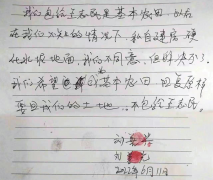 我们包给王志民是基本农田，以后
在我们不知的情况下，私自建房硬
化水泥地面，我们不同意，但解决不了。
我们希望 基本农田，回复原样
要回我们的土地，不包给王志民。
刘
刘
2023年6月11日